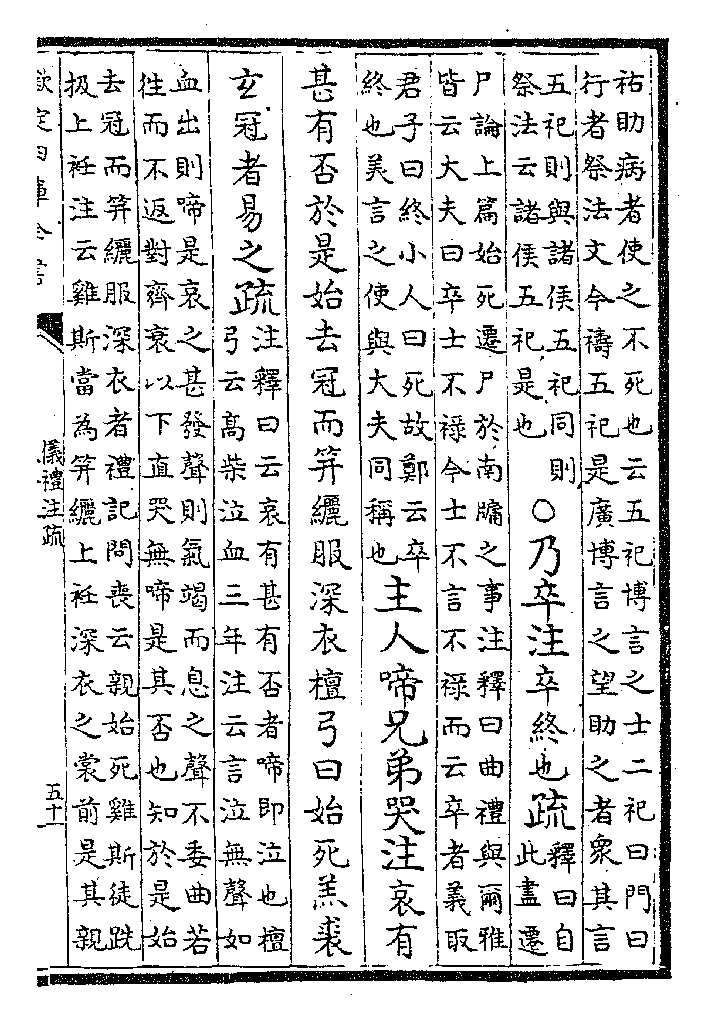 祐助病者使之不死也云五祀博言之士二祀曰門曰
行者祭法文今禱五祀是廣博言之望助之者衆其言
五祀則與諸侯五祀同則
祭法云諸侯五祀是也
○乃卒注卒終也疏
釋曰自
此盡遷
尸論上篇始死遷尸於南牖之事注釋曰曲禮與爾雅
皆云大夫曰卒士不祿今士不言不祿而云卒者義取
君子曰終小人曰死故鄭云卒
終也美言之使與大夫同稱也
主人啼兄弟哭注哀有
甚有否於是始去冠而筓纚服深衣檀弓曰始死羔裘
玄冠者易之疏
注釋曰云哀有甚有否者啼即泣也檀
弓云髙柴泣血三年注云言泣無聲如
血出則啼是哀之甚發聲則氣竭而息之聲不委曲若
徃而不返對齊衰以下直哭無啼是其否也知於是始
去冠而筓纚服深衣者禮記問喪云親始死雞斯徒跣
扱上衽注云雞斯當為筓纚上衽深衣之裳前是其親
欽定四庫全書
儀禮注疏
五十一